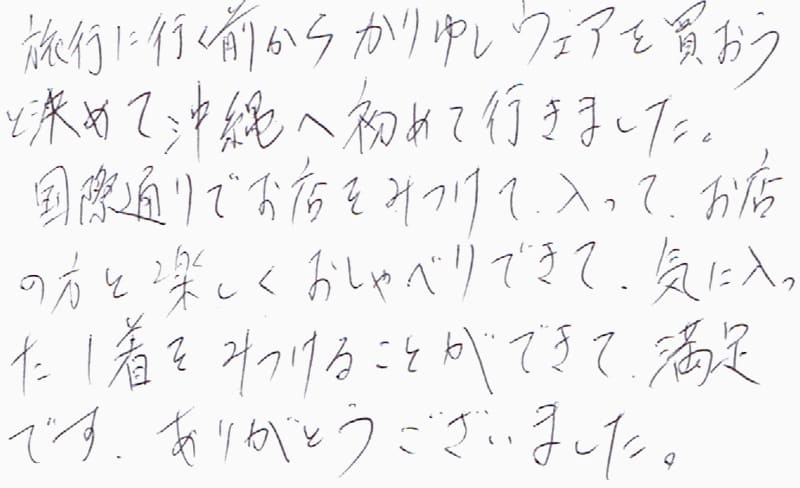 旅行に行く前からかりゆしウェアを買おう
と決めて沖縄へ初めて行きました。
国際通りでお店をみつけて、入って、お店
の方と楽しくおしゃべりできて、気に入っ
た1着をみつけることができて、満足
です、ありがとうございました。